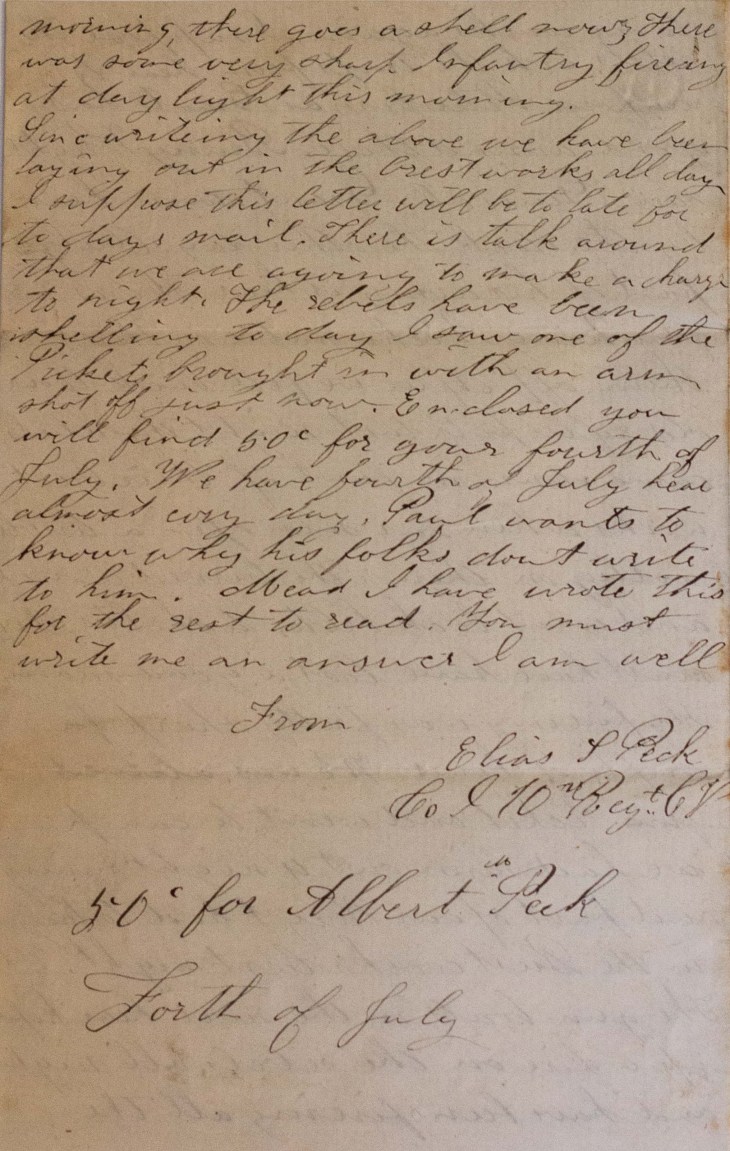 morning, there goes a shell now, There
was some very sharp Infantry fireing
at day light this morning.
Sinc writeing the above we have been
laying out in the brest works all day
I suppose this letter will be to late for
to days mail. There is talk around
that we are agoing to make a charge
to night. The rebels have been
shelling to day I saw one of the
Pickets brought in with an arm
shot off just now. Enclosed you
will find 50c for your fourth of
July. We have fourth of July hear
almost evry day. Paul wants to
know why his folks dont write
to him. Mead I have wrote this
for the rest to read. You must
write me an answer I am well
From
Elias S Peck
Co I 10th Regt. CV
50c for Albert M Peck
Forth of July